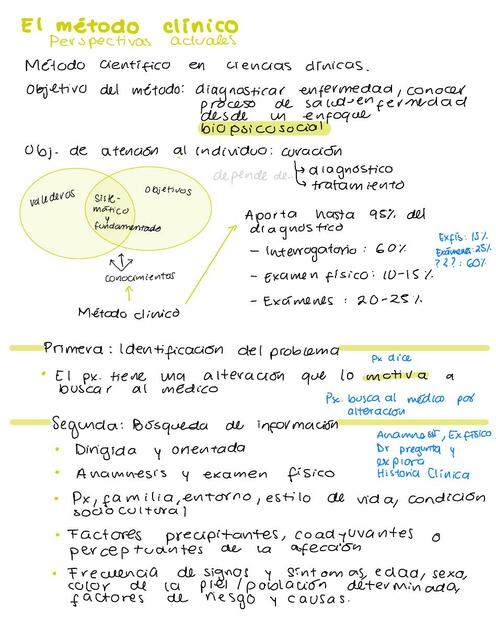 El método clínico
Perspectivas actuales
Método científico en ciencias clínicas.
Objetivo del método: diagnosticar enfermedad, conocer
proceso de salud-enfermedad
desde un enfoque
biopsicosocial
Obj. de atención al individuo: curación
depende de...
diagnostico
tratamiento
valederos
Siste-
mático
y
fundamentado
Objetivos
conocimientos
Método clinico
Aporta hasta 95% del
diagnostico
- Interrogatorio: 60%
- Examen físico: 10-15%
- Exámenes : 20-25%
Exfís: 15%
Exámenes: 25%
???: 60%
Primera: Identificación del problema
Px dice
• El px. tiene una alteración que lo motiva a
buscar al médico
Px. busca al médico por
alteración
Segunda: Búsqueda de información
Anamnesis, Ex físico
Dr pregunta y
explora
Historia Clínica
• Dirigida y orientada
• Anamnesis y examen físico
• Px, familia, entorno, estilo de vida, condición
sociocultural
• Factores precipitantes, coadyuvantes o
perceptuantes de la afección
• Frecuencia de signos y síntomas, edad, sexo,
color de la piel/población determinada,
factores de riesgo y causas.